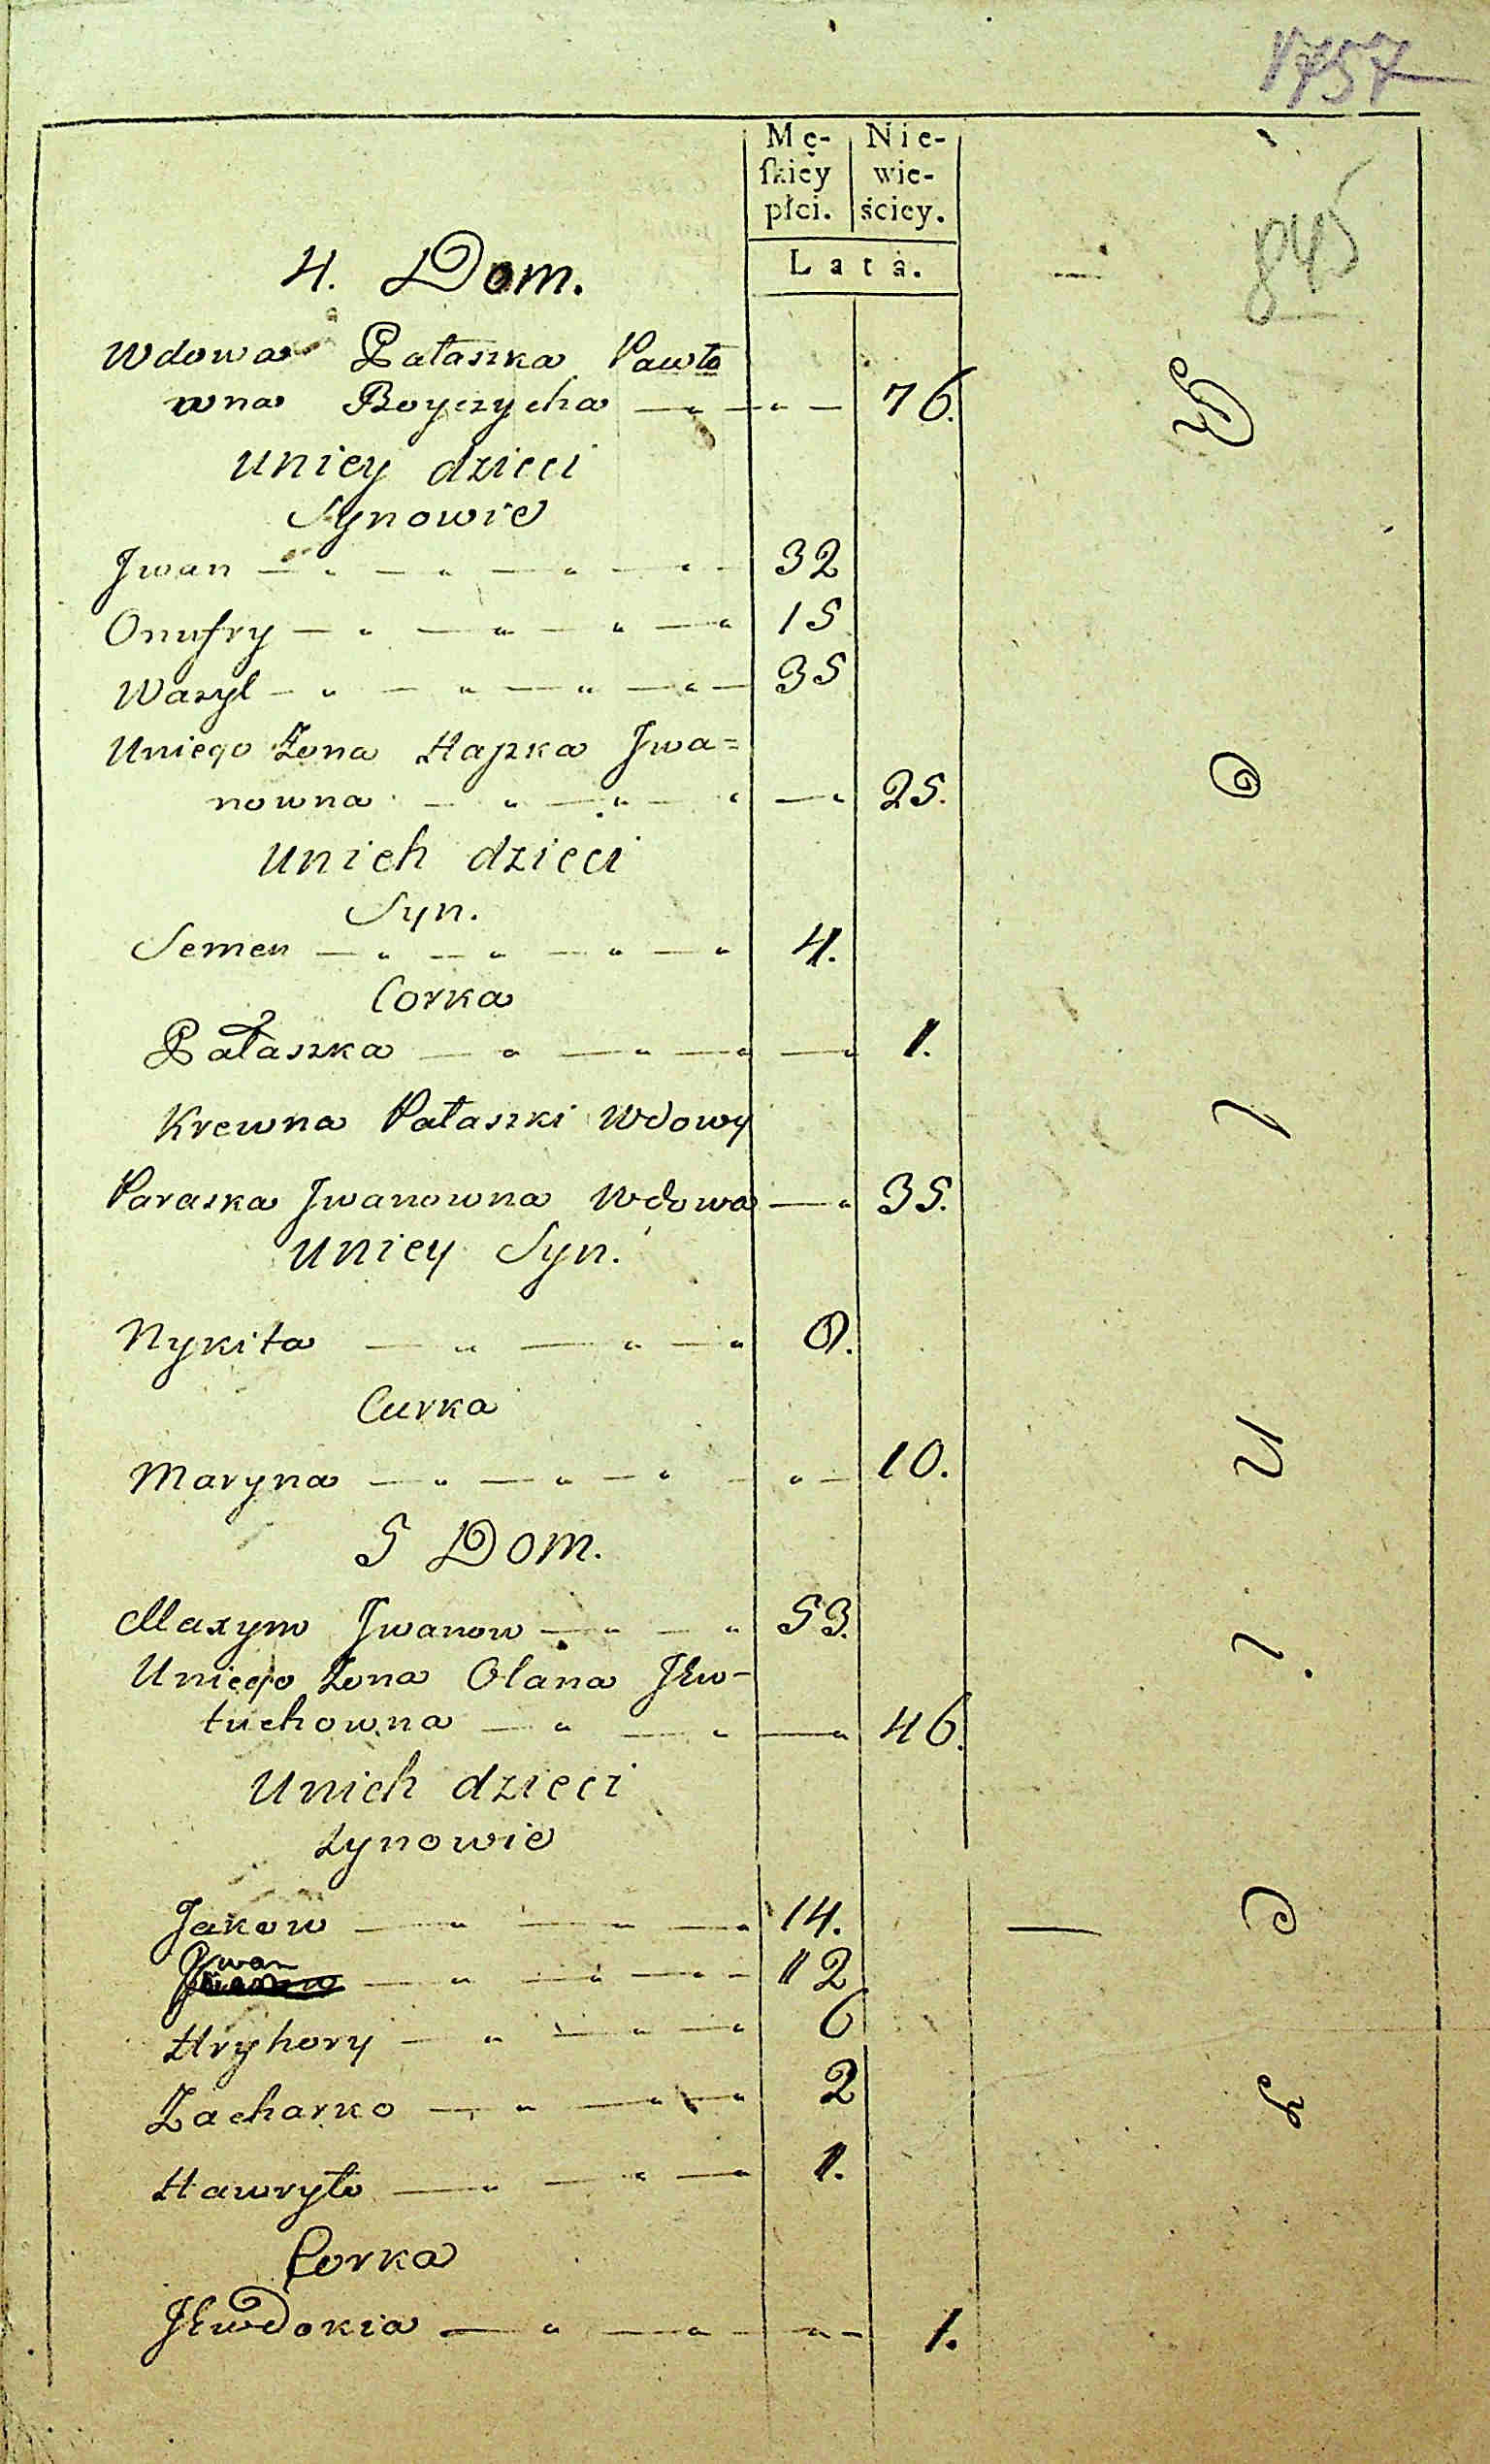 1757
845
Mę- Nie-
ſkiey wie-
płci. ściey.
Lata.
4. Dom.
Wdowa Pałaszka Pawło
wna Boyczycha 76.
Uniey dzieci
Synowie
Jwan 32
Onufry 15
Wasyl 35
Uniego Żona Hapka Jwa=
nowna 25.
Unich dzieci
Syn.
Semen 4.
Corka
Pałaszka 1.
Krewna Pałaszki Wdowy
Paraska Jwanowna Wdowa 35.
Uniey Syn.
Nykita
Curka
Maryna 10.
5 Dom.
Maxym Jwanow 53.
Uniego Żona Olana Jew-
tuchowna 46.
Unich dzieci
Synowie
Jakow 14.
Jwan 12
Hryhory 6
Zacharko 2
Hawryło 1.
Corka
Jewdokia 1.